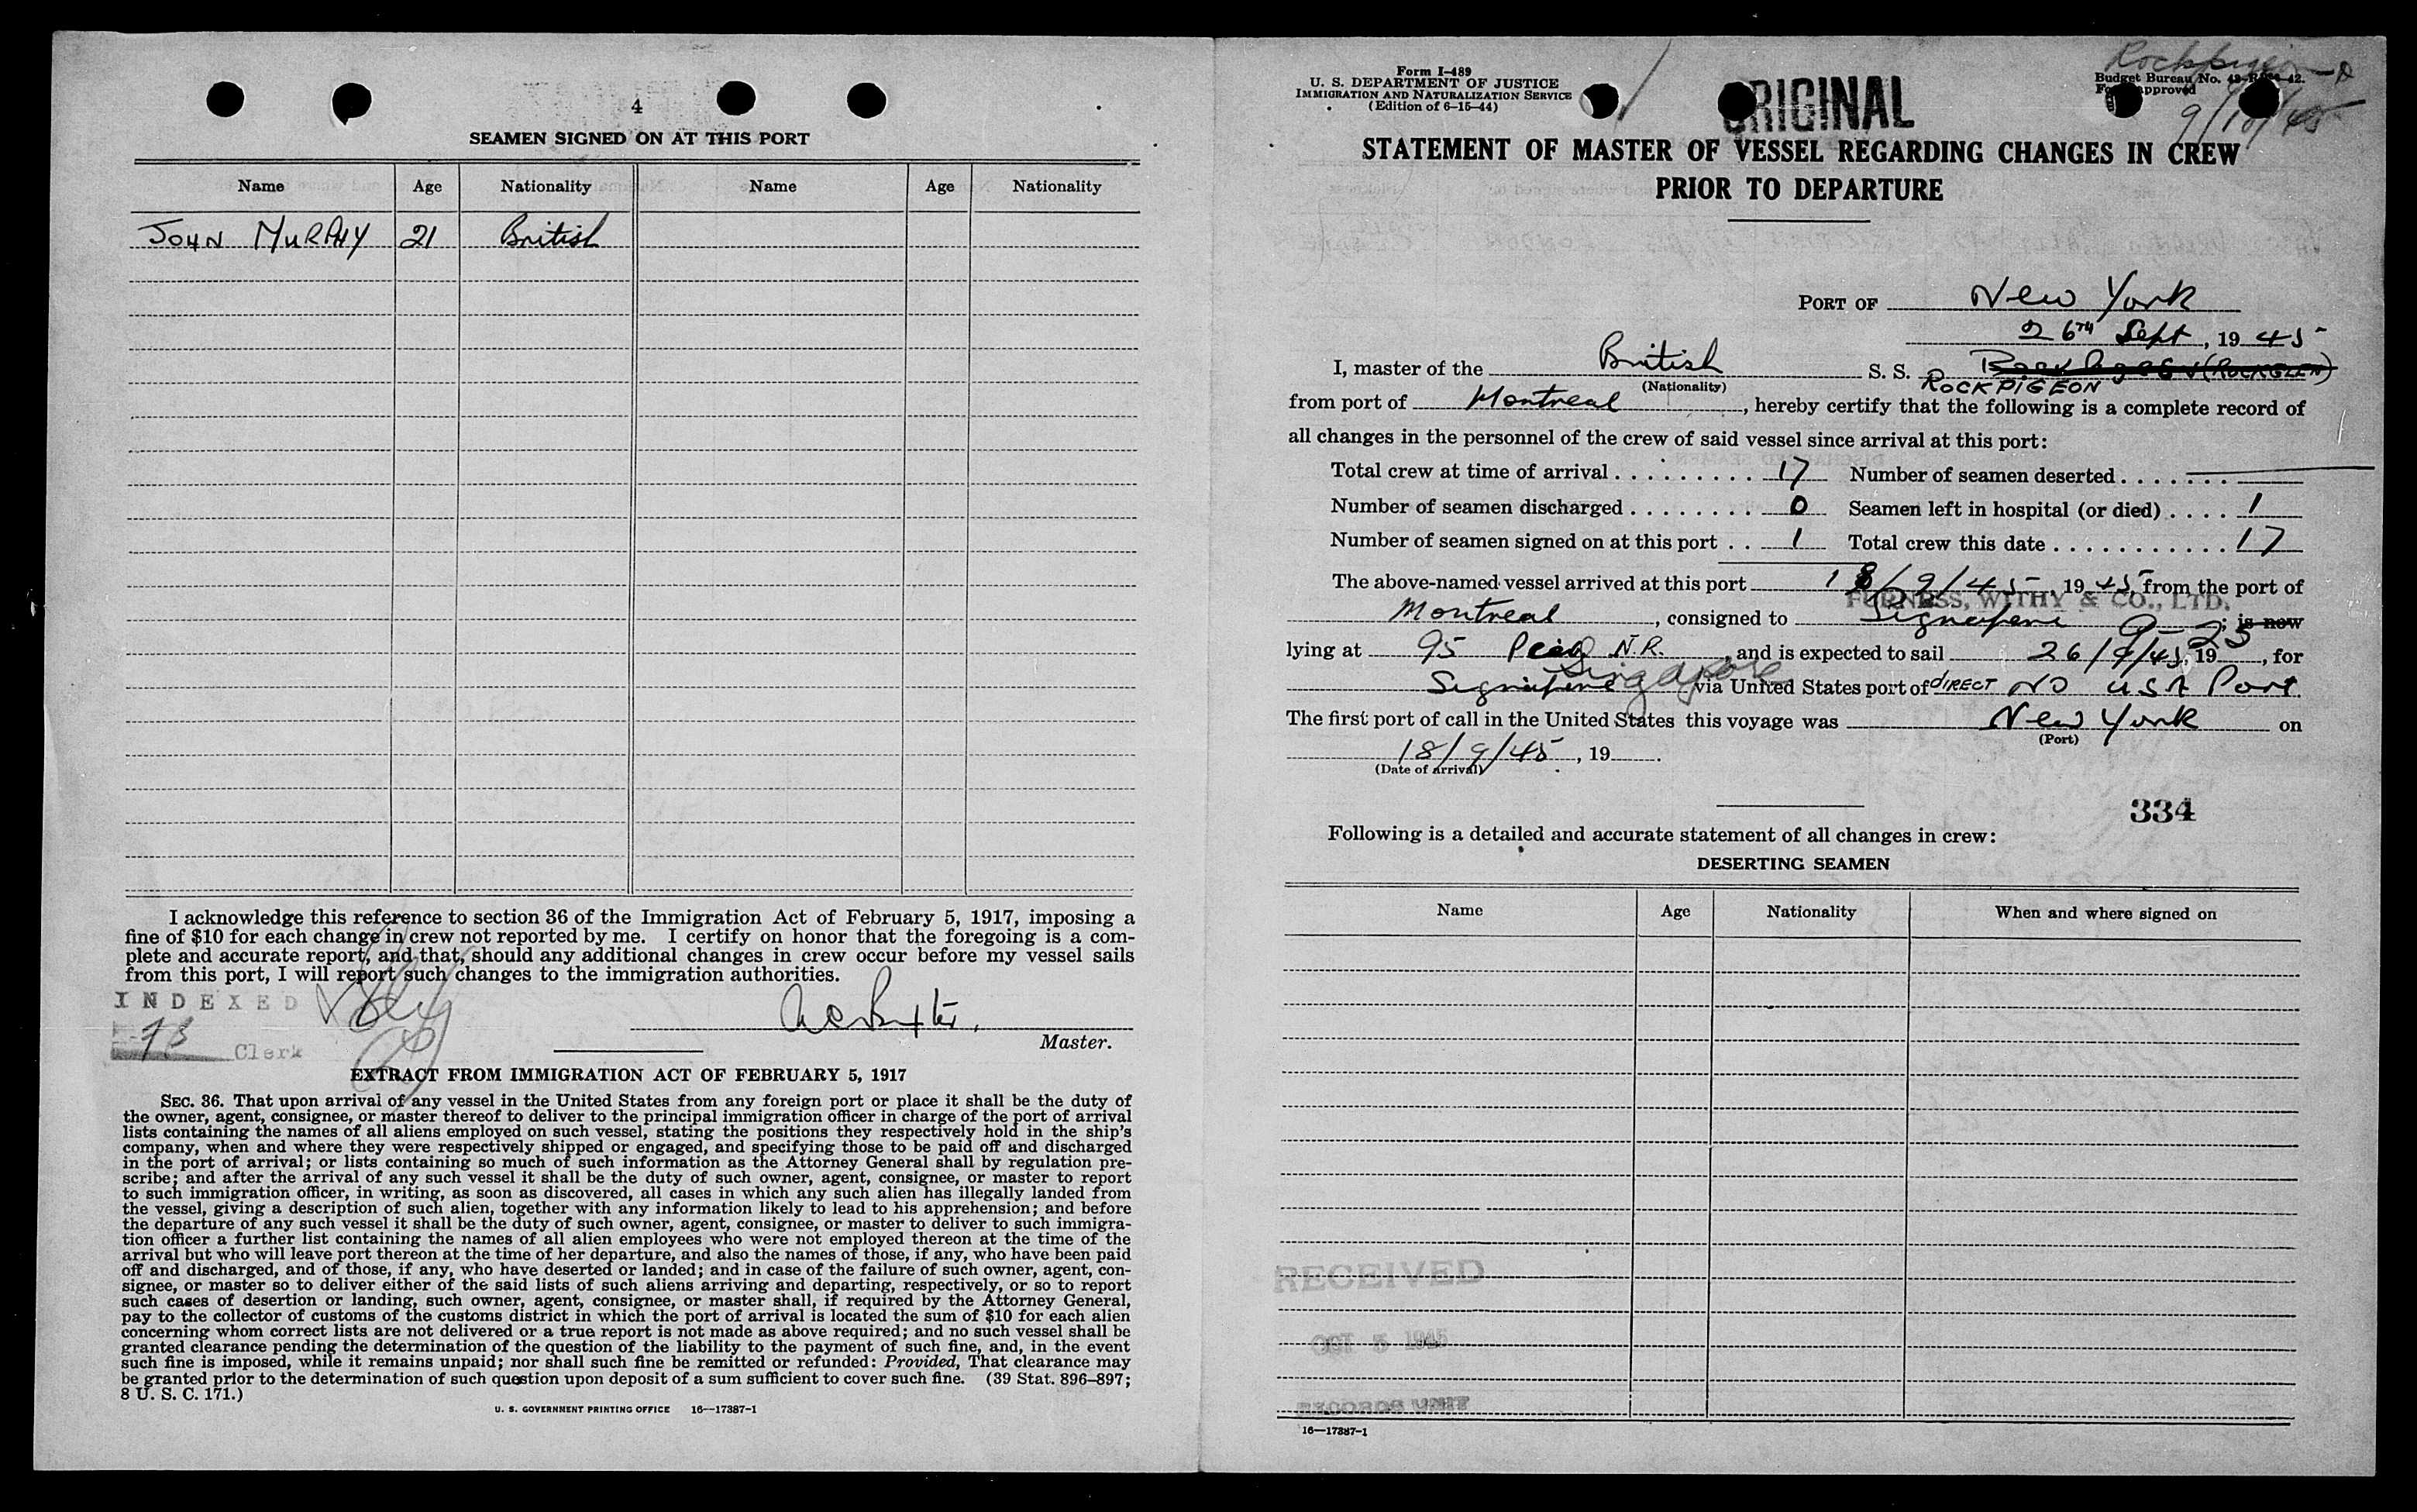 4
SEAMEN SIGNED ON AT THIS PORT
Name Age Nationality Name Age Nationality
JOHN MURPHY 21 British
I acknowledge this reference to section 36 of the Immigration Act of February 5, 1917, imposing a
fine of $10 for each change in crew not reported by me. I certify on honor that the foregoing is a com-
plete and accurate report, and that, should any additional changes in crew occur before my vessel sails
from this port, I will report such changes to the immigration authorities.
INDEXED
Clerk
Master.
EXTRACT FROM IMMIGRATION ACT OF FEBRUARY 5, 1917
SEC. 36. That upon arrival of any vessel in the United States from any foreign port or place it shall be the duty of
the owner, agent, consignee, or master thereof to deliver to the principal immigration officer in charge of the port of arrival
lists containing the names of all aliens employed on such vessel, stating the positions they respectively hold in the ship's
company, when and where they were respectively shipped or engaged, and specifying those to be paid off and discharged
in the port of arrival; or lists containing so much of such information as the Attorney General shall by regulation pre-
scribe; and after the arrival of any such vessel it shall be the duty of such owner, agent, consignee, or master to report
to such immigration officer, in writing, as soon as discovered, all cases in which any such alien has illegally landed from
the vessel, giving a description of such alien, together with any information likely to lead to his apprehension; and before
the departure of any such vessel it shall be the duty of such owner, agent, consignee, or master to deliver to such immigra-
tion officer a further list containing the names of all alien employees who were not employed thereon at the time of the
arrival but who will leave port thereon at the time of her departure, and also the names of those, if any, who have been paid
off and discharged, and of those, if any, who have deserted or landed; and in case of the failure of such owner, agent, con-
signee, or master so to deliver either of the said lists of such aliens arriving and departing, respectively, or so to report
such cases of desertion or landing, such owner, agent, consignee, or master shall, if required by the Attorney General,
pay to the collector of customs of the customs district in which the port of arrival is located the sum of $10 for each alien
concerning whom correct lists are not delivered or a true report is not made as above required; and no such vessel shall be
granted clearance pending the determination of the question of the liability to the payment of such fine, and, in the event
such fine is imposed, while it remains unpaid; nor shall such fine be remitted or refunded: Provided, That clearance may
be granted prior to the determination of such question upon deposit of a sum sufficient to cover such fine. (39 Stat. 896–897;
8 U. S. C. 171.)
U. S. GOVERNMENT PRINTING OFFICE 16—17387-1
Form I-489
U. S. DEPARTMENT OF JUSTICE
IMMIGRATION AND NATURALIZATION SERVICE
(Edition of 6-15-44)
ORIGINAL
Rockpigeon
Budget Bureau No.
approved
9/10/45
STATEMENT OF MASTER OF VESSEL REGARDING CHANGES IN CREW
PRIOR TO DEPARTURE
PORT OF New York
26TH Sept, 19 45
I, master of the British S. S. (ROCKGLEN)
(Nationality) ROCKPIGEON
from port of Montreal, hereby certify that the following is a complete record of
all changes in the personnel of the crew of said vessel since arrival at this port:
Total crew at time of arrival 17 Number of seamen deserted
Number of seamen discharged 0 Seamen left in hospital (or died) 1
Number of seamen signed on at this port 1 Total crew this date 17
The above-named vessel arrived at this port 18/9/45, 19 45, from the port of
FURNESS, WITHY & CO., LTD.
Montreal, consigned to ; is now
lying at 95 Pier N.R., and is expected to sail 26/9/45, 19, for
Singapore via United States port of DIRECT NO USA Port
The first port of call in the United States this voyage was New York on
(Port)
18/9/45, 19.
(Date of arrival)
334
Following is a detailed and accurate statement of all changes in crew:
DESERTING SEAMEN
Name Age Nationality When and where signed on
RECEIVED
OCT 5 1945
RECORDS UNIT
16—17387-1